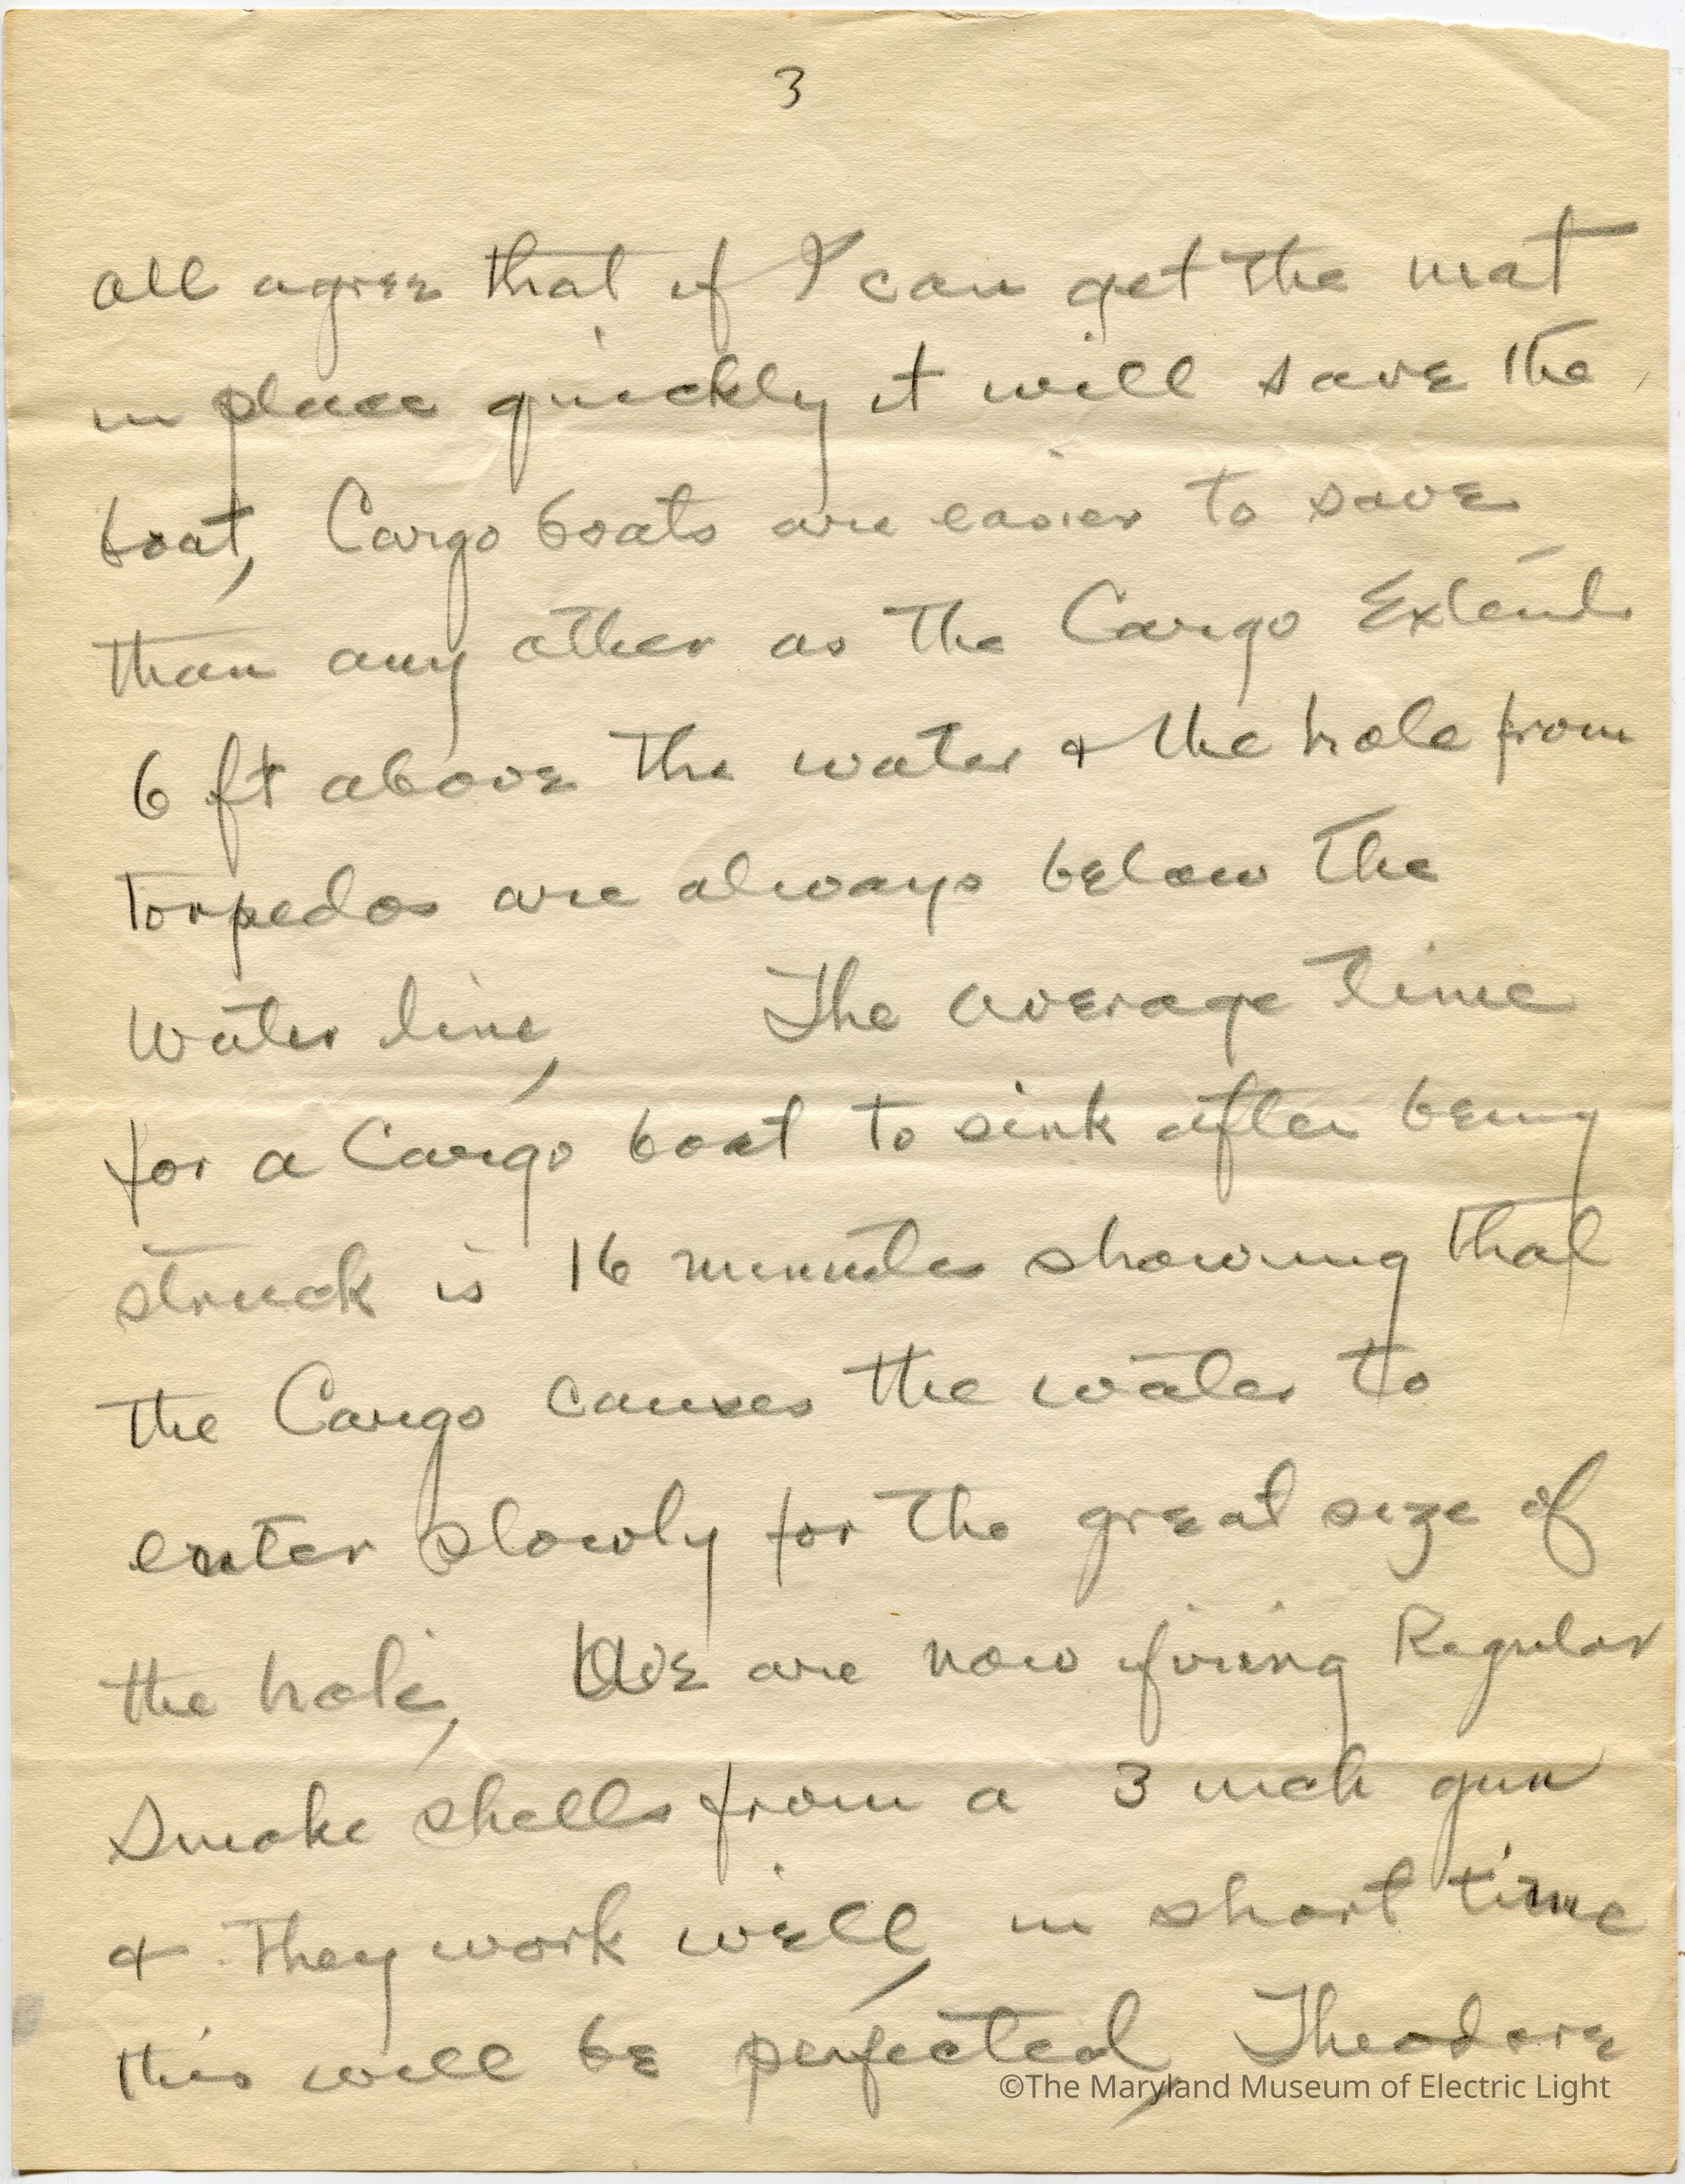 3
all agree that if I can get the mat
in place quickly it will save the
boat, Cargo boats are easier to save
than any other as the Cargo Extends
6 ft above the water & the hole from
torpedos are always below the
water line, The average time
for a Cargo boat to sink after being
struck is 16 minutes showing that
the Cargo causes the water to
enter slowly for the great size of
the hole, We are now firing Regular
Smoke shells from a 3 inch gun
& they work well, in short time
this will be perfected, Theodore
©The Maryland Museum of Electric Light